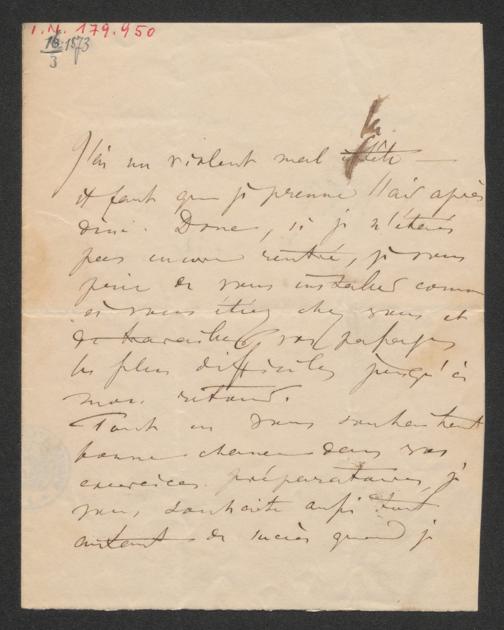 I.N. 179.450
16/3 1873
J'ai un violent mal
il faut que je prenne l'air après
dîner. Donc, si je n'étais
pas encore rentré, je vous
prie de vous installer comme
si vous étiez chez vous et
de travailler vos passages
les plus difficiles jusqu'à
mon retour.
Tout en vous souhaitant
bonne chance dans vos
exercices préparatoires, je
vous souhaite aussi tout
autant de succès quand je